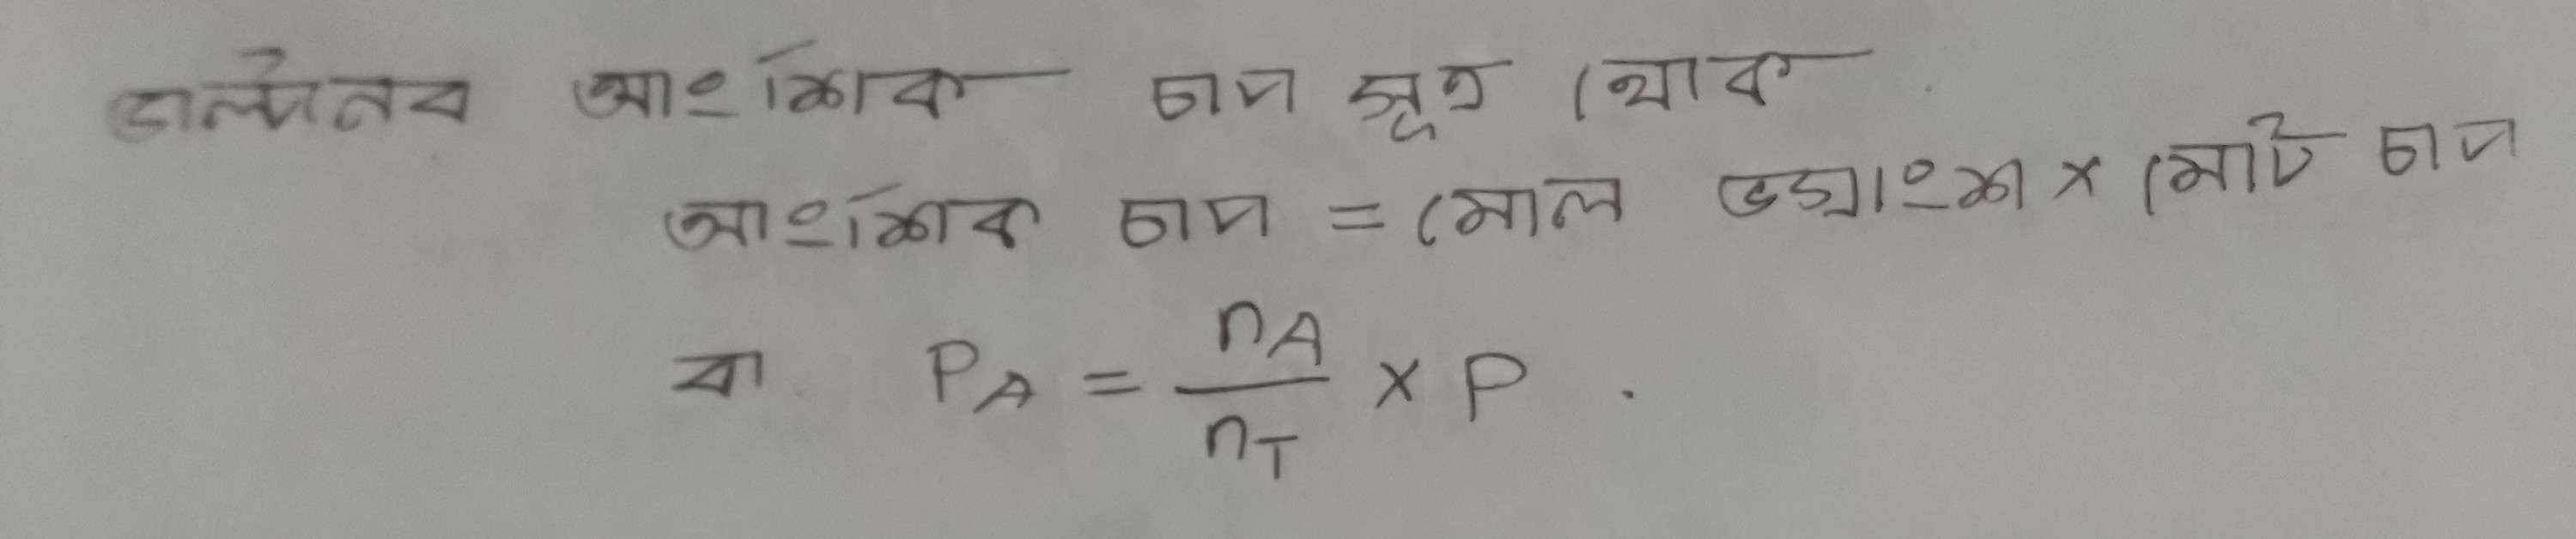 ডাল্টনের আংশিক চাপ সূত্র থেকে
আংশিক চাপ = মোল ভগ্নাংশ × মোট চাপ
বা P_A = n_A / n_T × P .